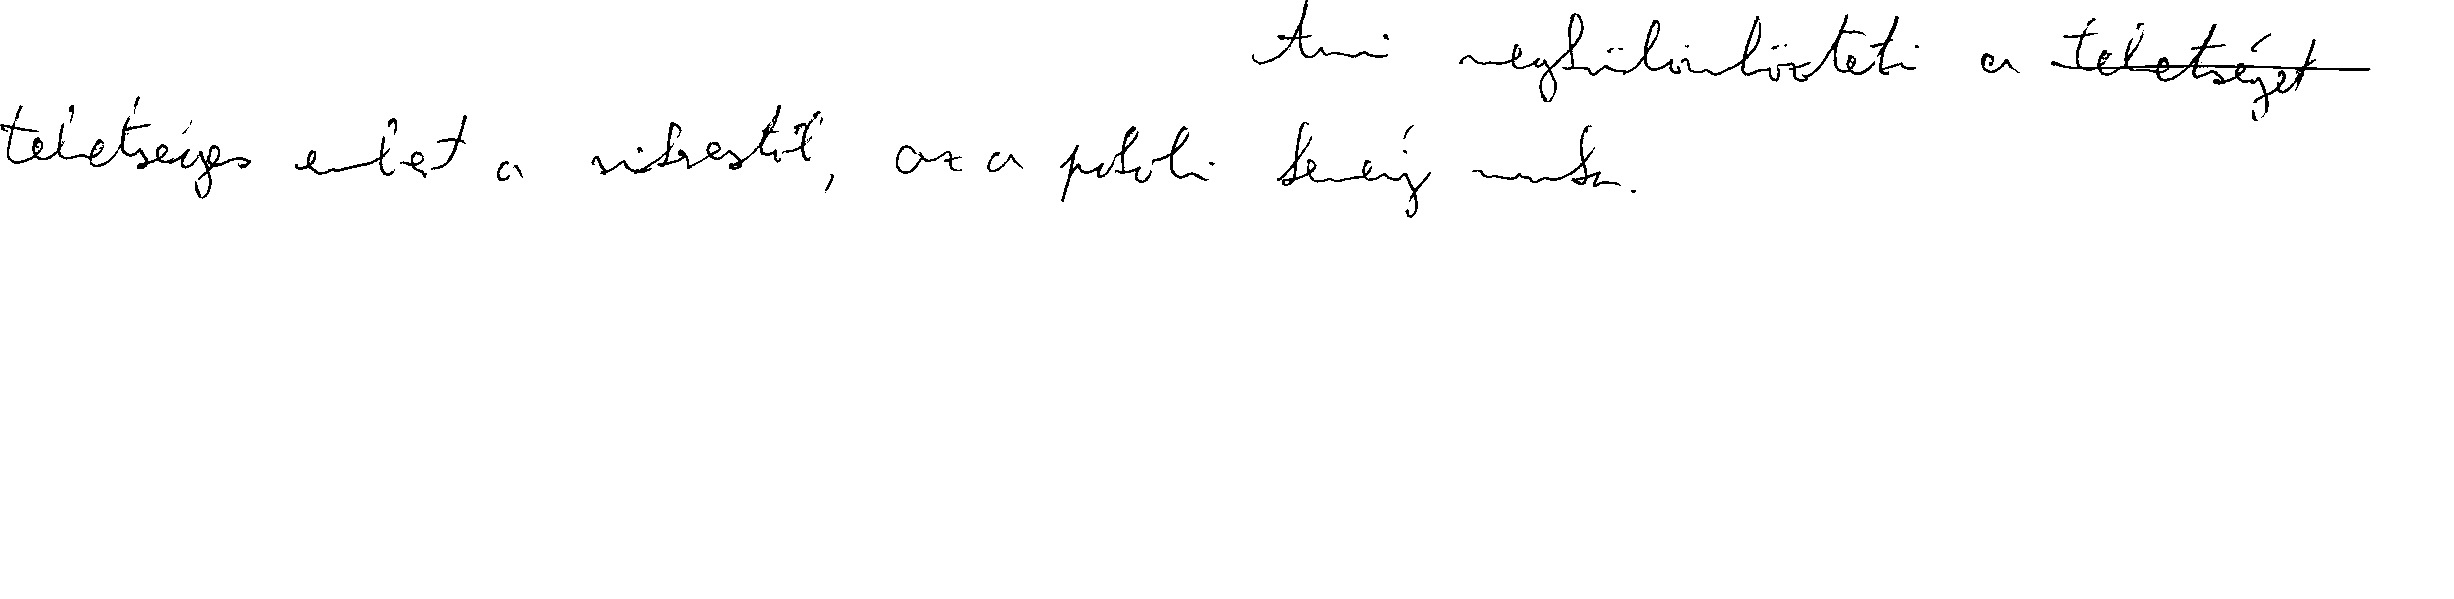 Ami megkülönbözteti a tehetséget
tehetséges embert a sikerestől, az a pokoli kemény munka.